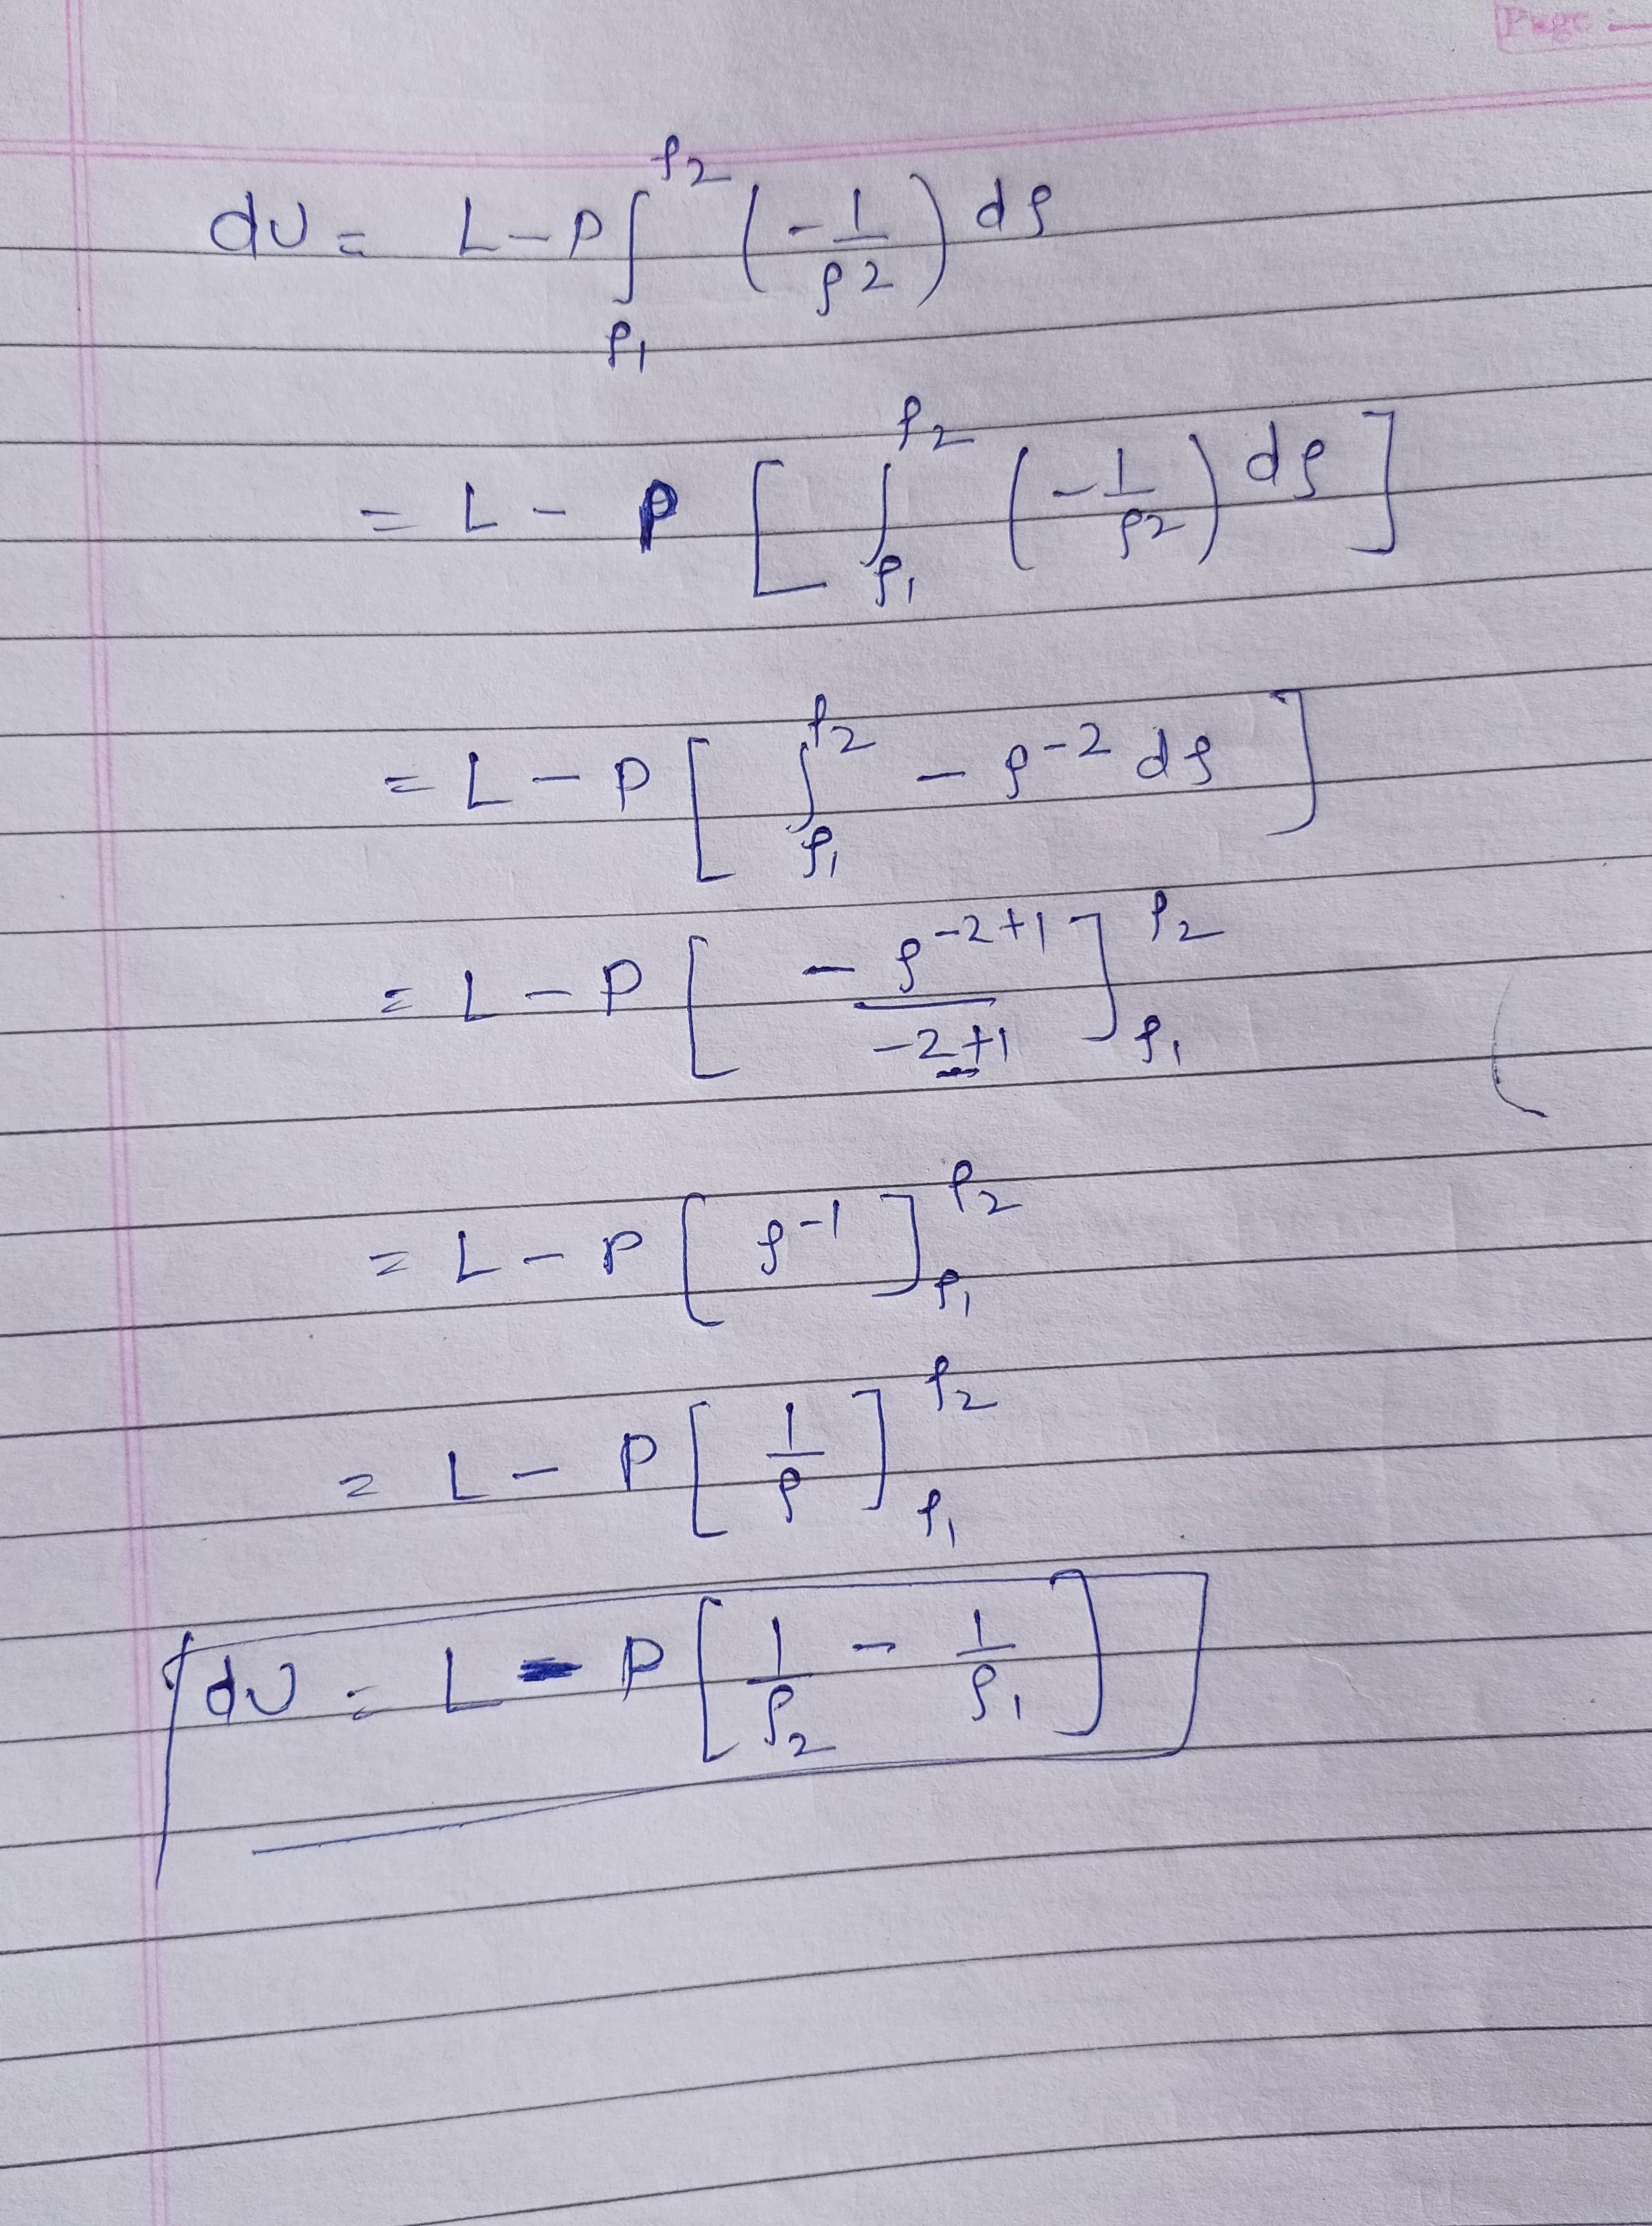 Page :-
dU = L - P ∫_{ρ1}^{ρ2} (-1/ρ2) dρ
= L - P [ ∫_{ρ1}^{ρ2} (-1/ρ2) dρ ]
= L - P [ ∫_{ρ1}^{ρ2} - ρ^{-2} dρ ]
= L - P [ - ρ^{-2+1} / -2+1 ]_{ρ1}^{ρ2}
= L - P [ ρ^{-1} ]_{ρ1}^{ρ2}
= L - P [ 1/ρ ]_{ρ1}^{ρ2}
dU = L - P [ 1/ρ2 - 1/ρ1 ]